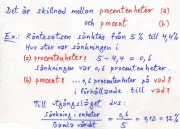 Det är skillnad mellan procentenheter (a)
och procent (b)
Ex: Räntesatsen sänktes från 5 % till 4,4 %
Hur stor var sänkningen i
(a) procentenheter: 5 - 4,4 = 0,6
sänkningen var 0,6 procentenheter
(b) procent? ... 0,6 procentenheter på vad?
i förhållande till vad?
Till utgångsläget dvs:
Sänkning i enheter / Gamla värdet = 0,6 / 5 = 0,12 = 12 %